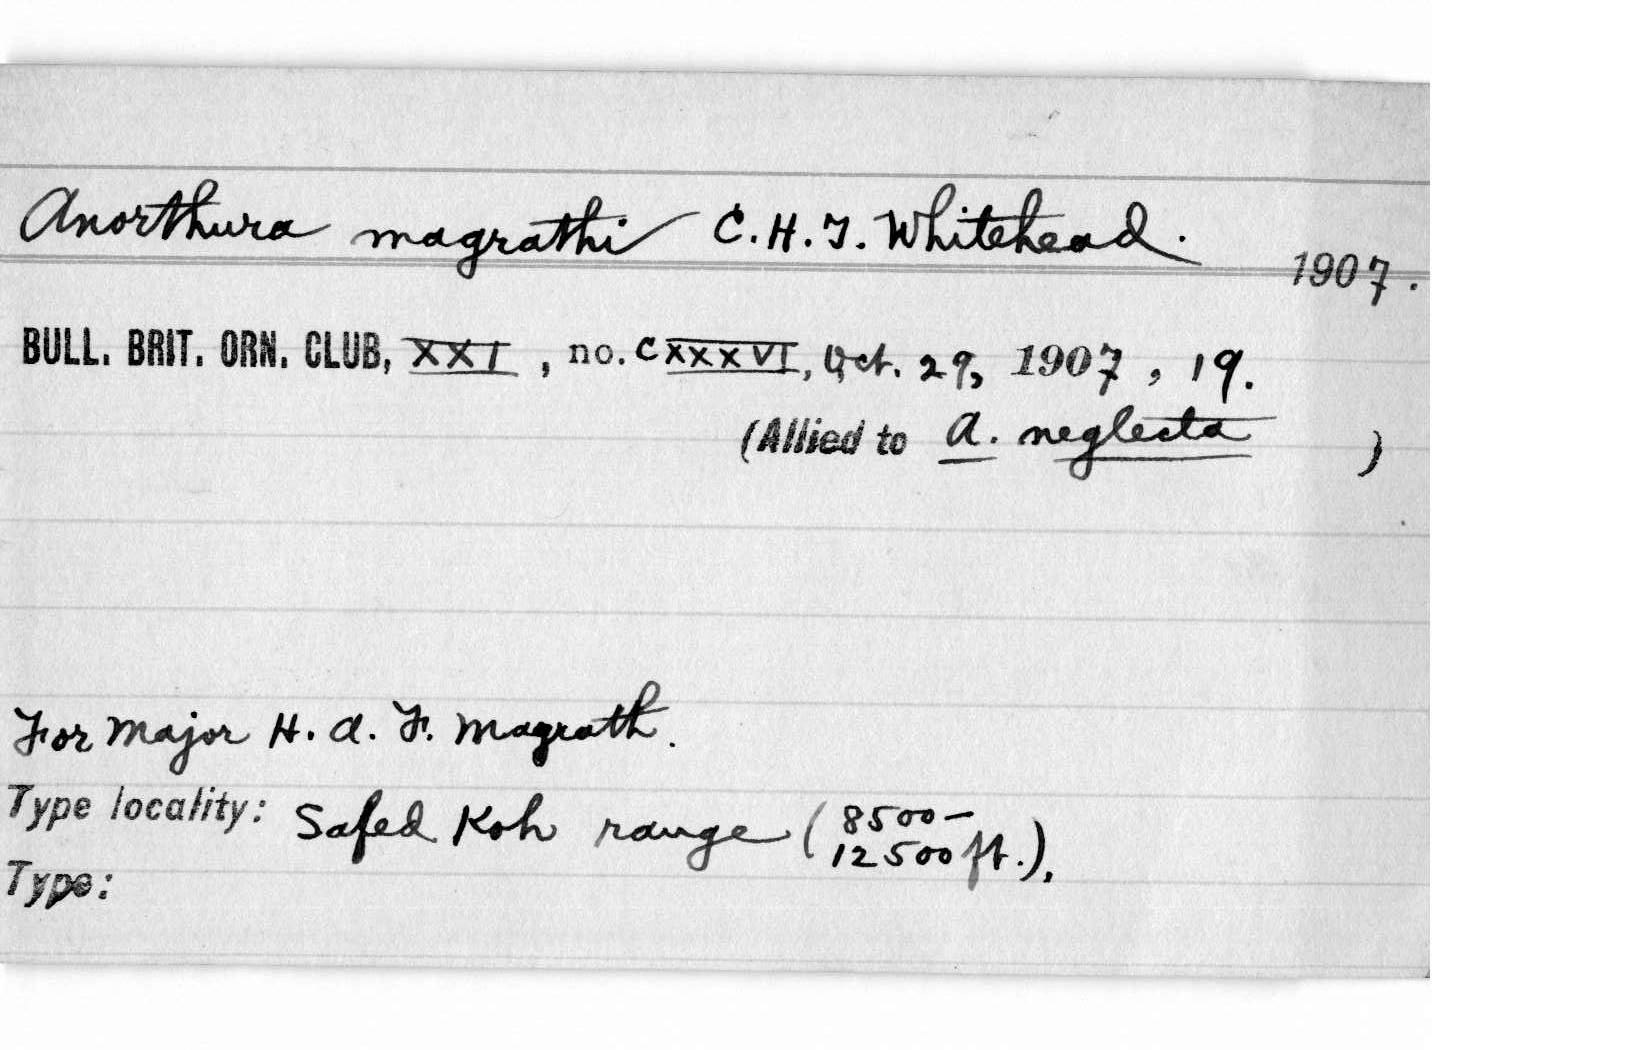 Anorthura magrathi C. H. T. Whitehead. 1907.
BULL. BRIT. ORN. CLUB, XXI, no. CXXXVI, Oct. 29, 1907, 19.
(Allied to A. neglecta )
For Major H. A. F. Magrath.
Type locality: Safed Koh range (8500–
12500 ft.).
Type: